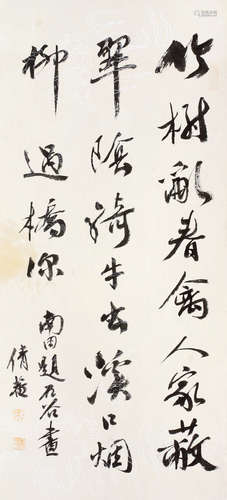 竹樹亂春禽人家蔽
翠陰騎牛出溪口烟
柳過橋深
南田題石谷畫
倩菴